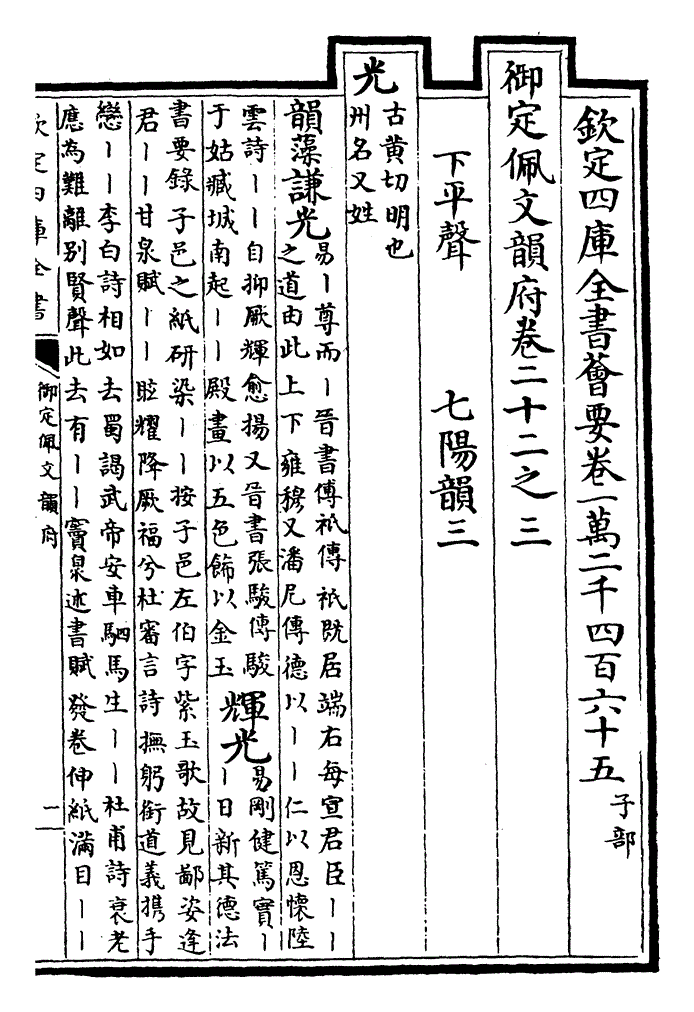 欽定四庫全書薈要卷一萬二千四百六十五 子部
御定佩文韻府卷二十二之三
下平聲 七陽韻三
光
古黄切明也
州名又姓
韻藻謙光
易丨尊而丨晉書傅祇傳祇既居端右每宣君臣丨丨
之道由此上下雍穆又潘尼傳德以丨丨仁以恩懷陸
雲詩丨丨自抑厥輝愈揚又晉書張駿傳駿
于姑臧城南起丨丨殿畫以五色飾以金玉
輝光
易剛健篤實丨
丨日新其德法
書要錄子邑之紙研染丨丨按子邑左伯字紫玉歌故見鄙姿逢
君丨丨甘泉賦丨丨眩耀降厥福兮杜審言詩撫躬銜道義携手
戀丨丨李白詩相如去蜀謁武帝安車駟馬生丨丨杜甫詩衰老
應為難離别賢聲此去有丨丨竇臮述書賦發卷伸紙滿目丨丨
欽定四庫全書
御定佩文韻府
一